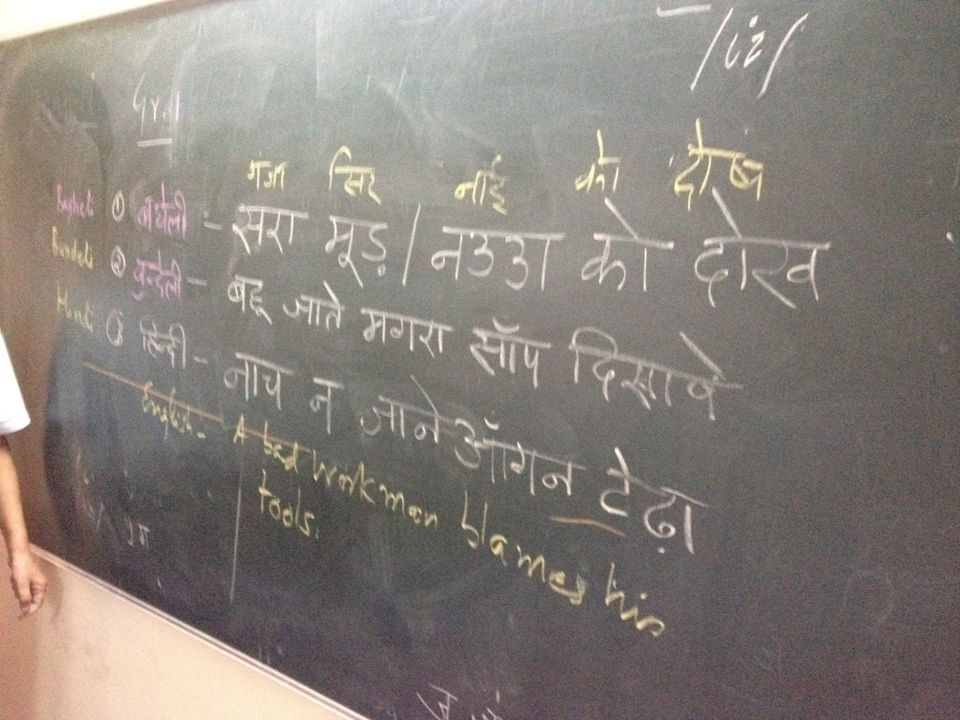 /iz/
गंजा सिर नाई को दोष
Bagheli ① बघेली - सरा मूड़ / नउउा को दोख
Bundeli ② बुन्देली - बहू जाते मगरा साॅप दिसावे
Hindi ③ हिन्दी - नाच न जाने ऑगन टेढ़ा
English - A bad workman blames his
tools.